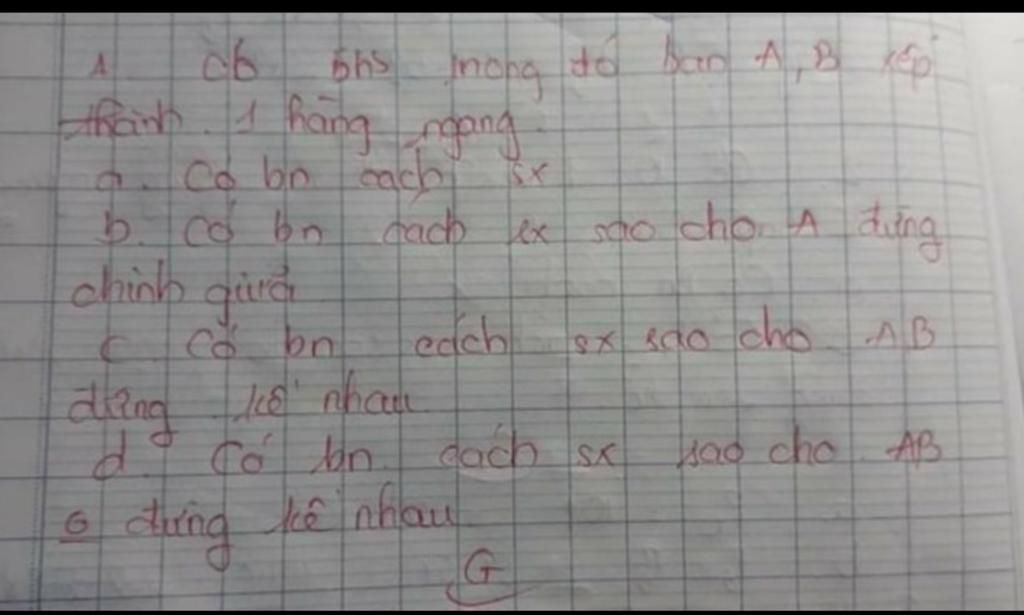 1 Có 5hs trong đó bạn A, B xếp
thành 1 hàng ngang
a. Có bn cách sx
b. Có bn cách sx sao cho A đứng
chính giữa
c Có bn cách sx sao cho AB
đứng kề nhau
d. Có bn cách sx sao cho AB
đứng kề nhau
G